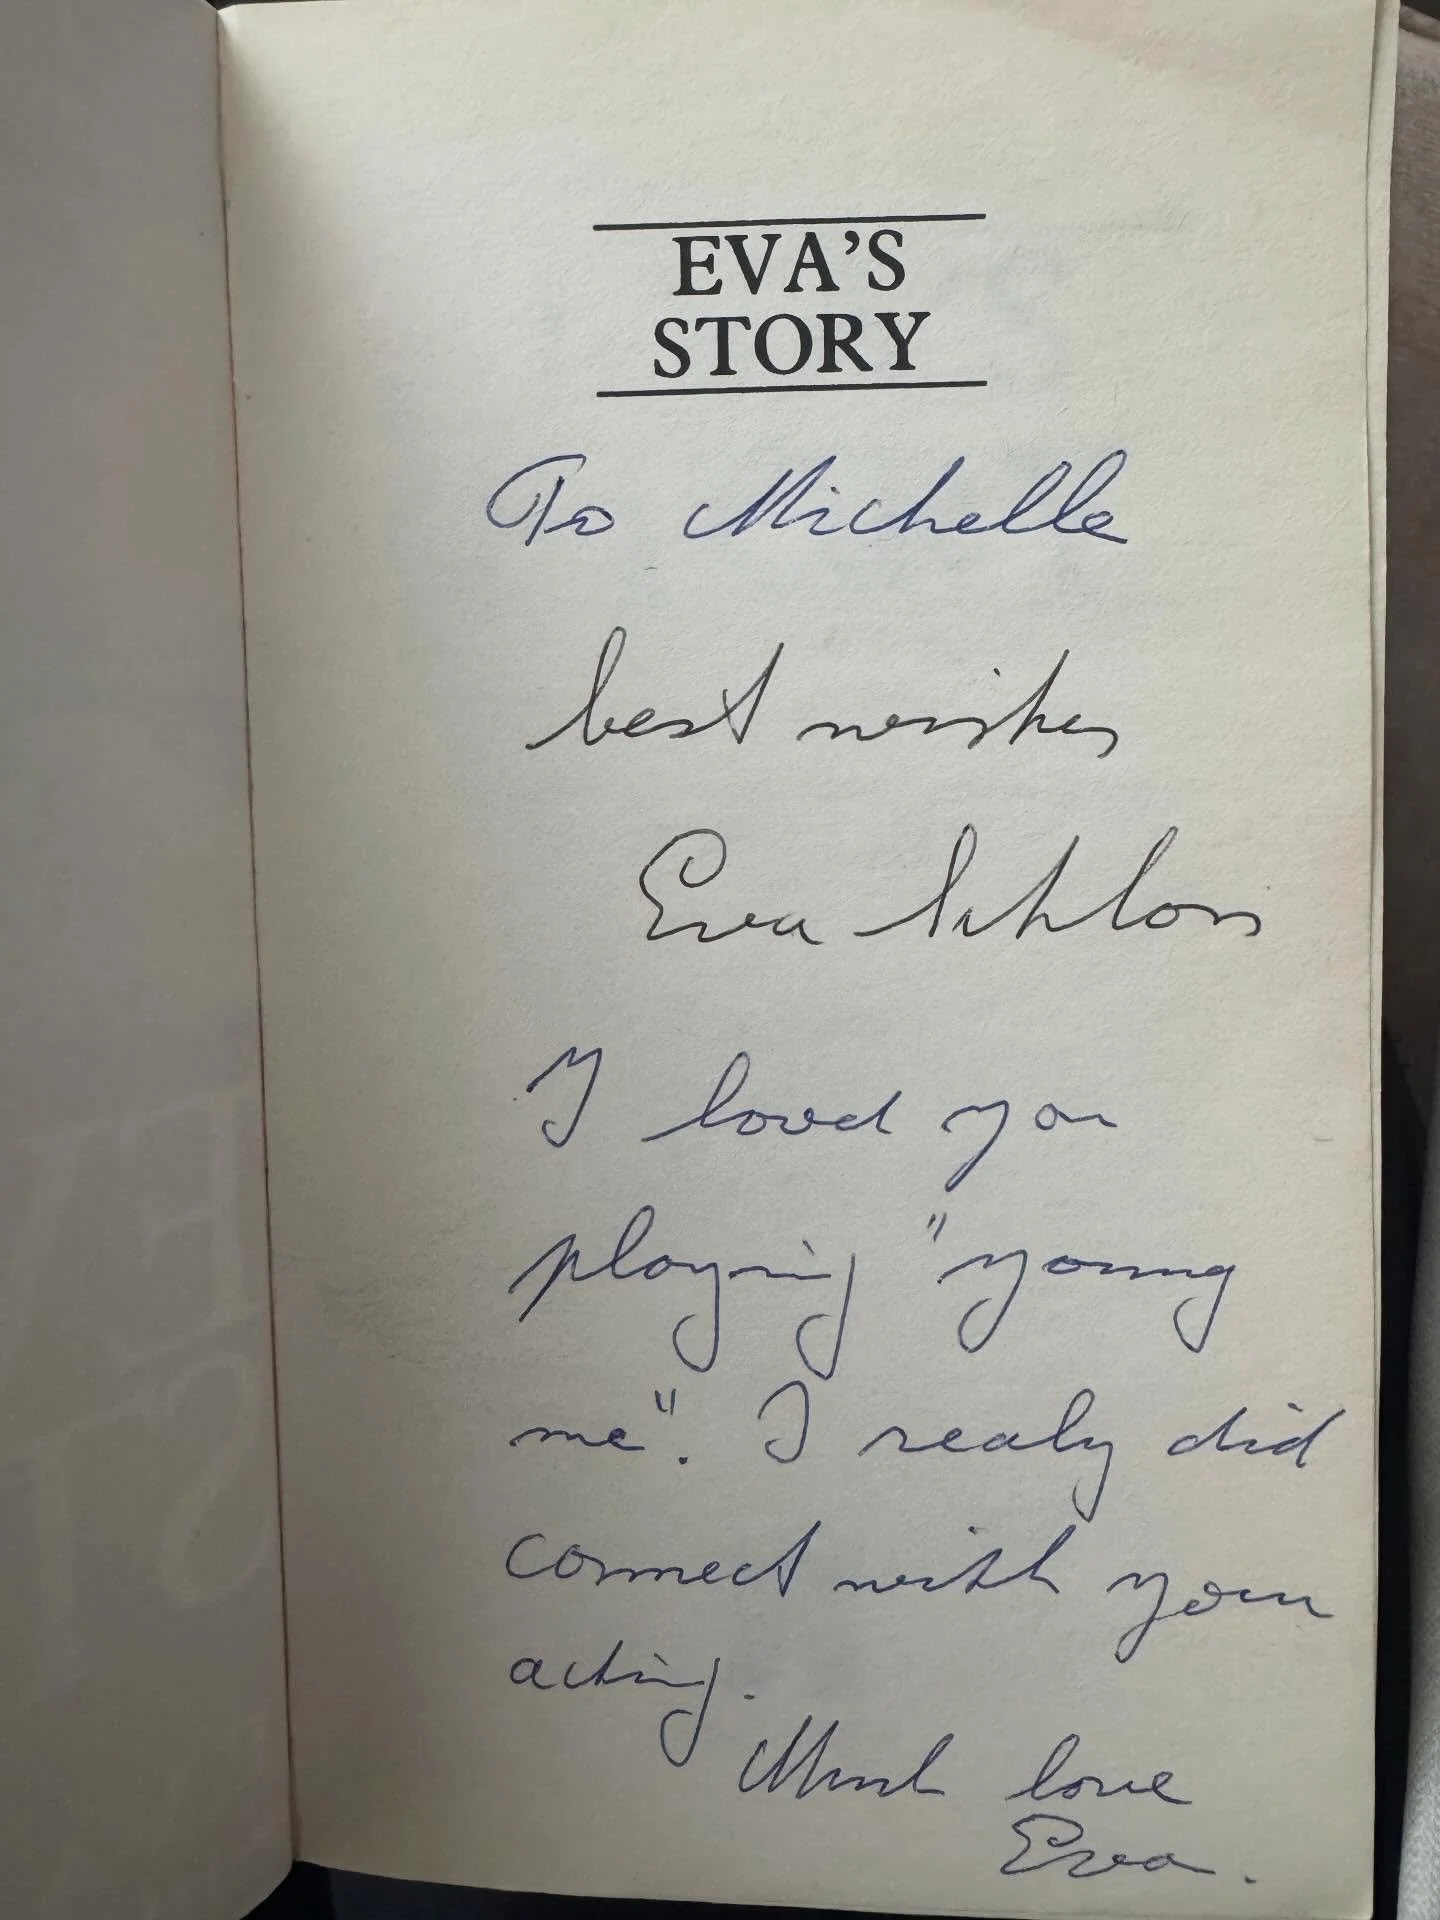 EVA'S
STORY
To Michelle
best wishes
Eva Schloss
I loved you
playing "young
me". I realy did
connect with your
acting.
Much love
Eva.